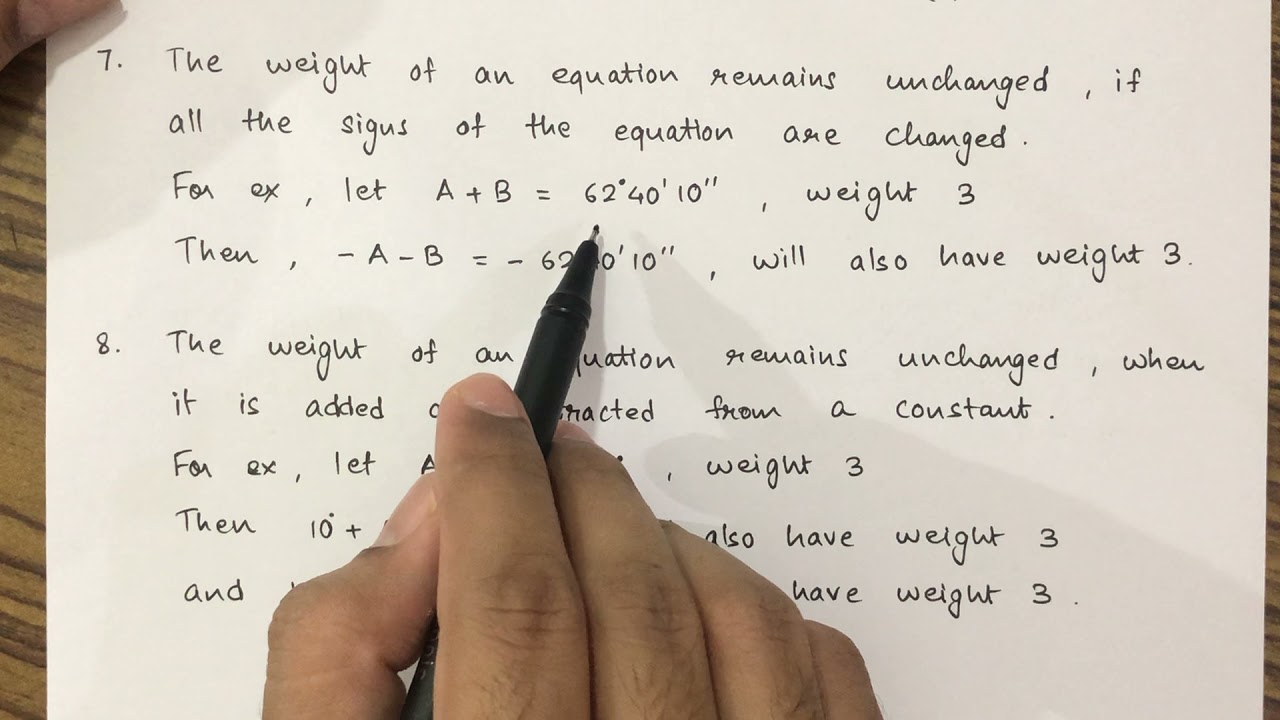 7. The weight of an equation remains unchanged, if
all the signs of the equation are changed.
For ex, let A + B = 62°40'10", weight 3
Then, -A-B = - 62 0'10", will also have weight 3.
8. The weight of an quation remains unchanged, when
it is added racted from a constant.
For ex, let A , weight 3
Then 10° + also have weight 3
and have weight 3.